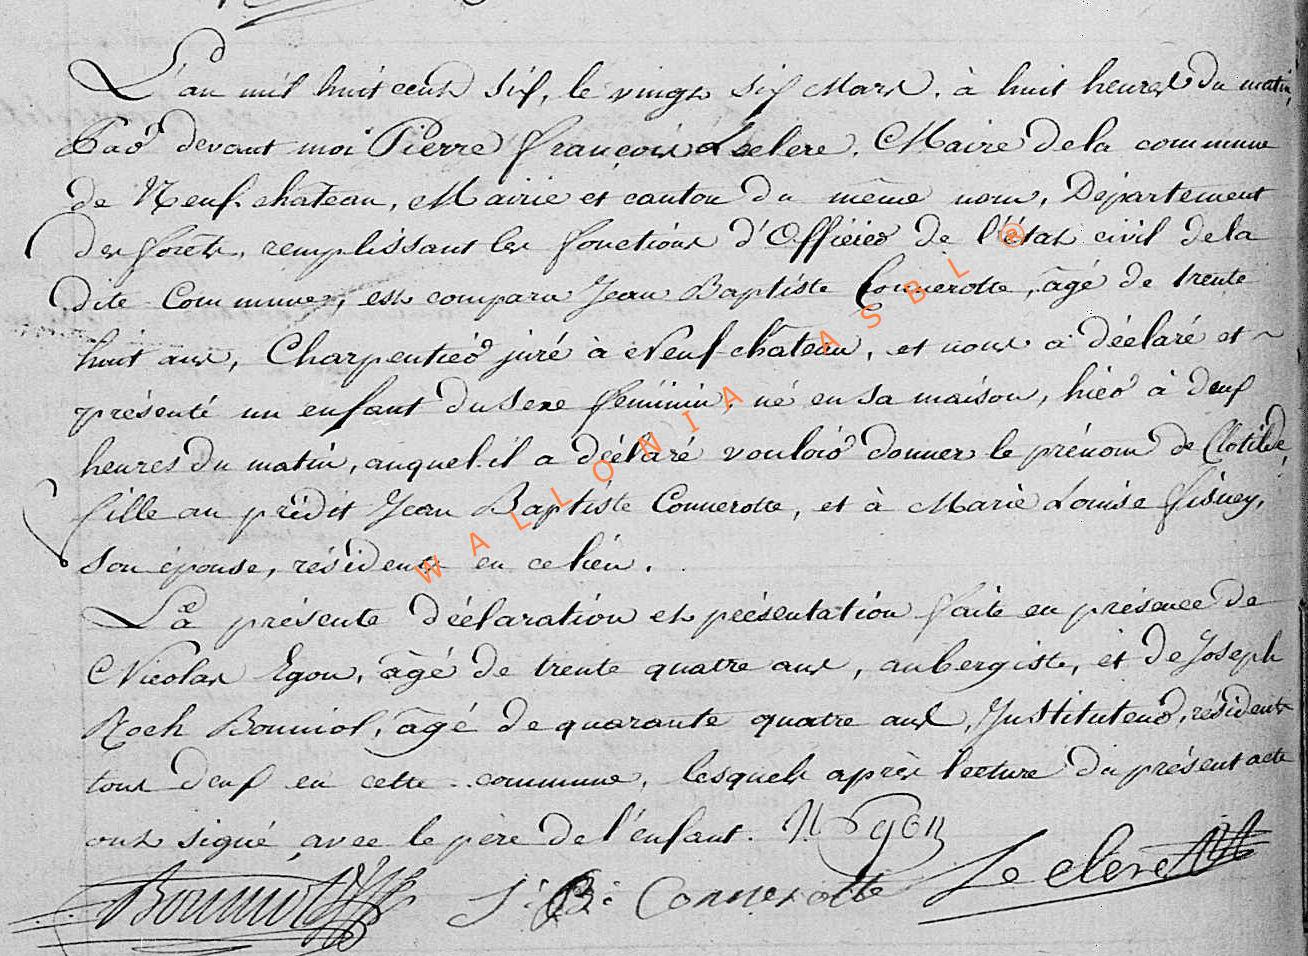 L'an mil huit cent six, le vingt six Mars, à huit heures du matin,
Par devant moi Pierre françois Leclere, Maire de la commune
de Neufchateau, Mairie et canton du même nom, Département
des forêts, remplissant les fonctions d'Officier de l'état civil de la
dite Commune, est comparu Jean Baptiste Connerotte, âgé de trente
huit ans, Charpentier juré à Neufchâteau, et nous a déclaré et
présenté un enfant du sexe féminin, né en sa maison, hier à deux
heures du matin, auquel il a déclaré vouloir donner le prénom de Clotilde,
fille au prédit Jean Baptiste Connerotte, et à Marie Louise Gisney,
son épouse, résidents en ce lieu.
La présente déclaration et présentation faite en présence de
Nicolas Egon, âgé de trente quatre ans, aubergiste, et de Joseph
Roch Bonniol, âgé de quarante quatre ans, Instituteur, résidents
tous deux en cette commune, lesquels après lecture du présent acte
ont signé avec le père de l'enfant. N Egon
Bonniol J: B: Connerotte Leclere
WALLONIA ASBL ®